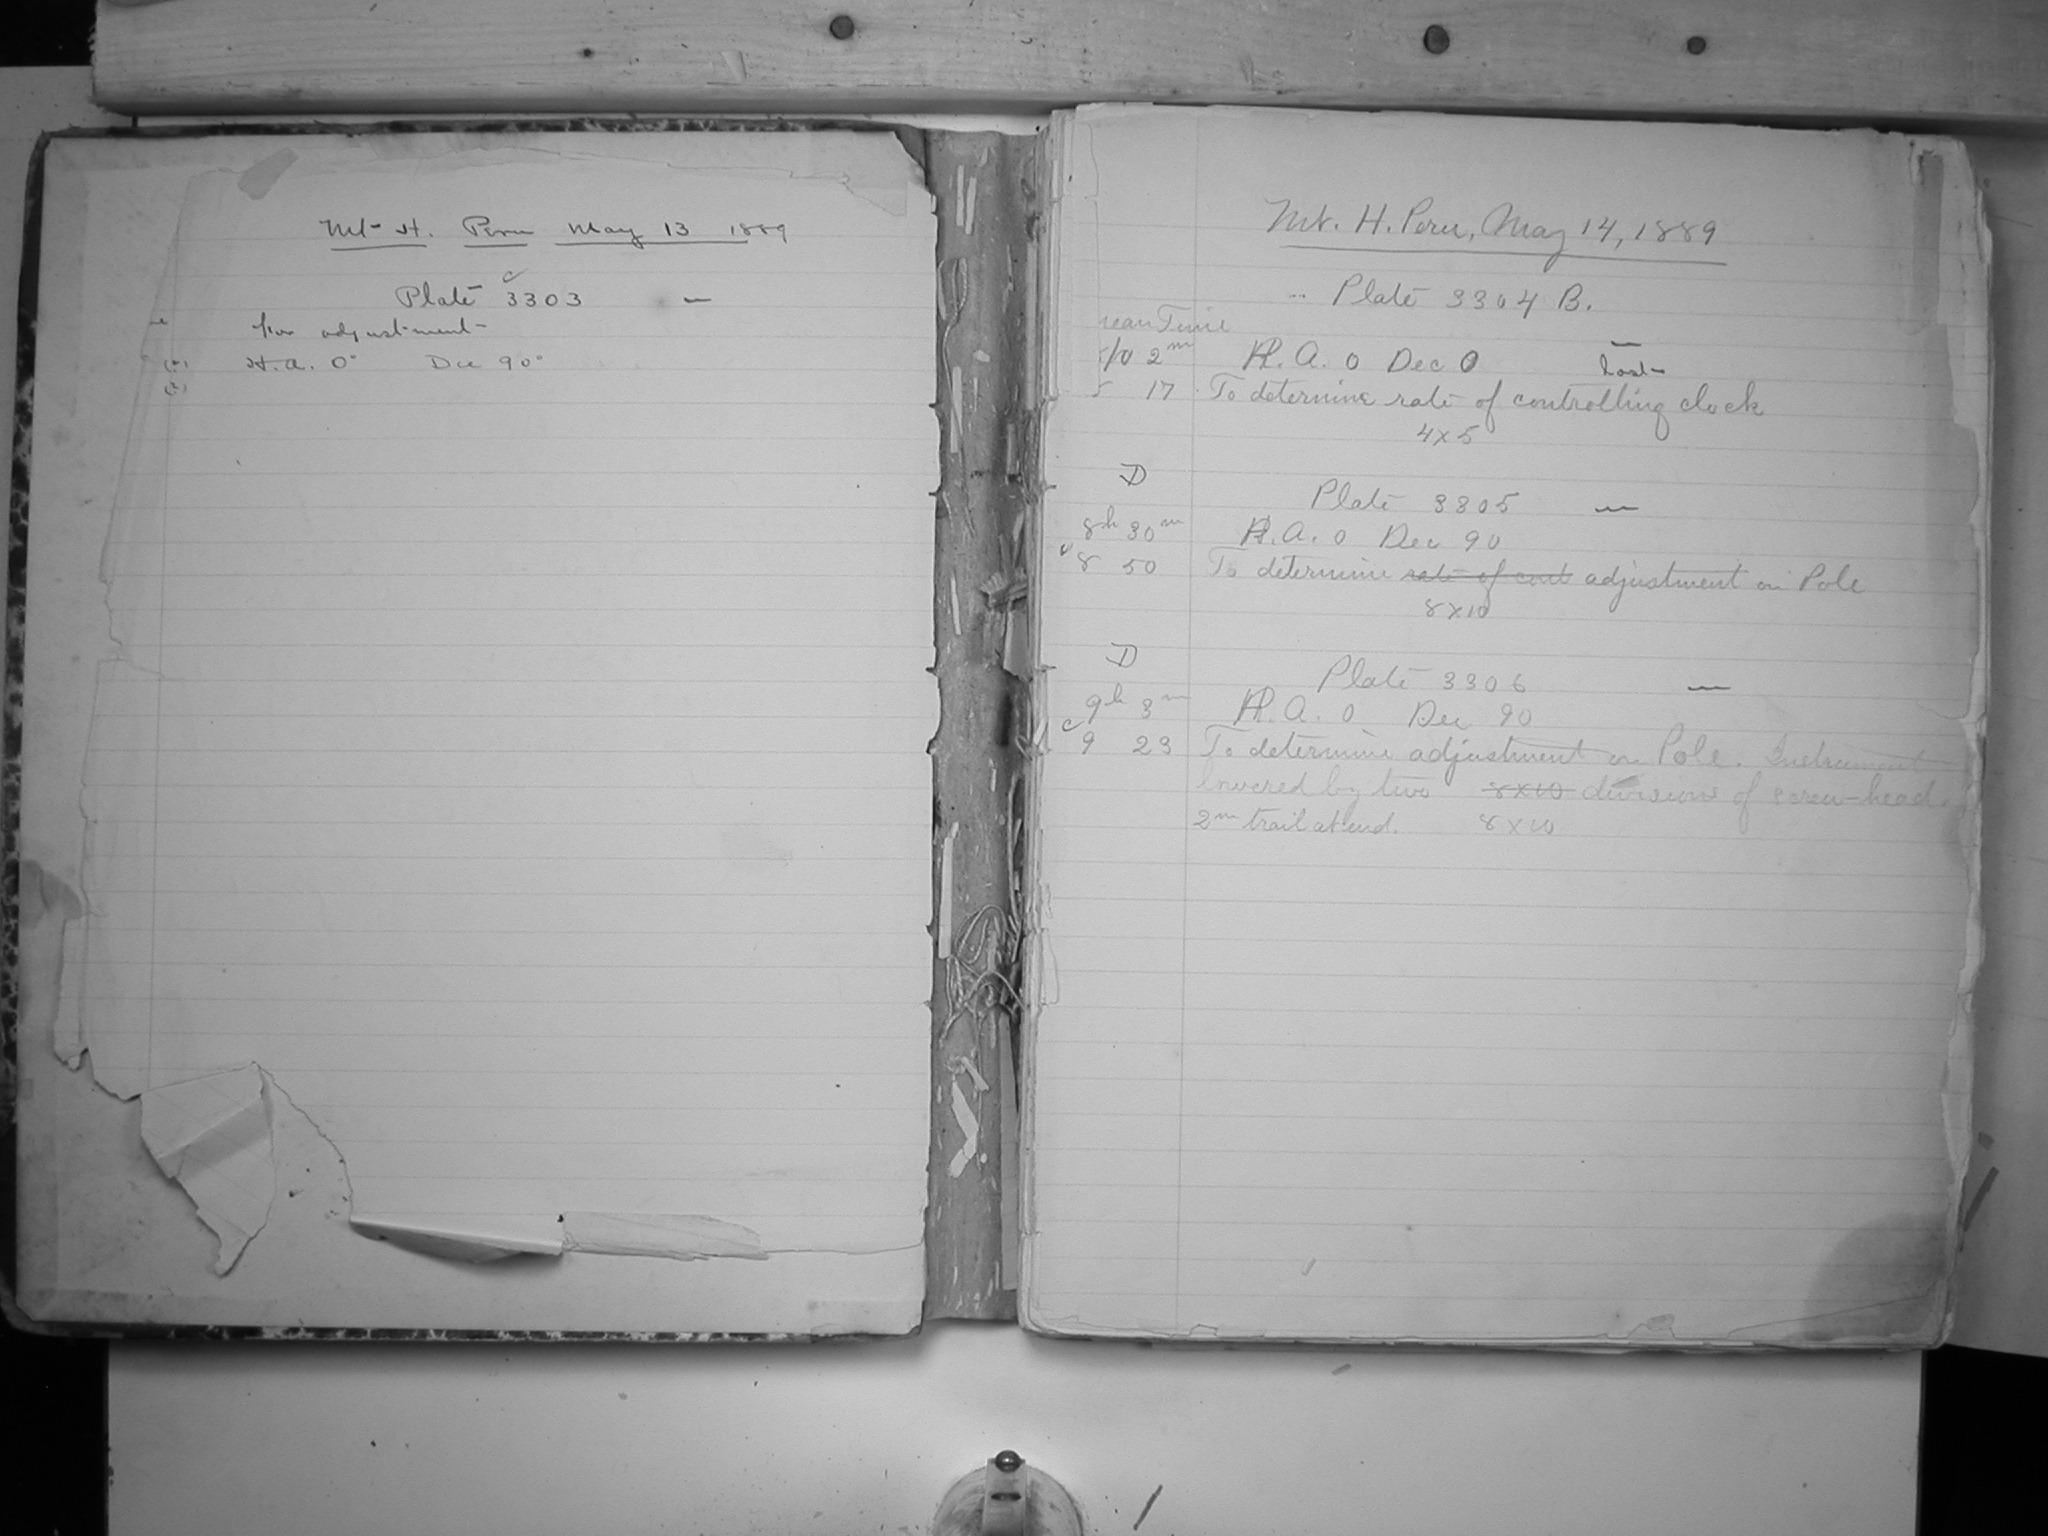 Mt. H. Peru May 13 1889
Plate 3303 —
For adjustment
H.A. 0° Dec 90°
Mt. H. Peru, May 14, 1889
Plate 3304 B.
mean Time
2m H.A. 0 Dec 0 Lost
17 To determine rate of controlling clock
4x5
D
Plate 3305 —
8h 30m H.A. 0 Dec 90
8 50 To determine rate of cont adjustment on Pole
8x10
D
Plate 3306 —
9h 3m H.A. 0 Dec 90
9 23 To determine adjustment on Pole. Instrument
lowered by two 8x10 divisions of screw-head.
2m trail at end. 8x10